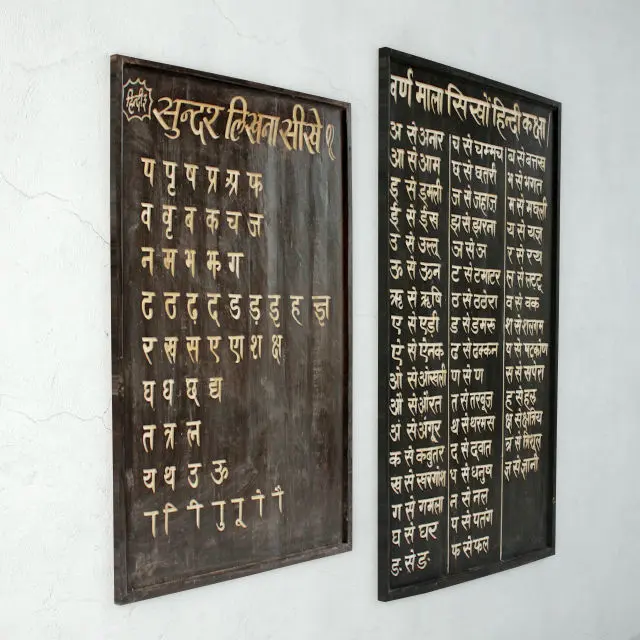 हिन्दी
सुन्दर लिखना सीखे १
प पृ ष प्र श्र फ
व वृ ब क च ज
न म भ झ ग
ट ठ ढ़ द ड ड़ इ ह ज्ञ
र ख स ए ण श क्ष
घ ध छ द्य
त त्र ल
य थ उ ऊ
वर्ण माला सिखों हिन्दी कक्षा
अ से अनार
आ से आम
इ से इमली
ई से ईस
उ से उल्लू
ऊ से ऊन
ऋ से ऋषि
ए से एड़ी
ऐ से ऐनक
ओ से ओखली
औ से औरत
अं से अंगूर
क से कबुतर
ख से खरगोश
ग से गमला
घ से घर
ङ से ङ
च से चम्मच
छ से छतरी
ज से जहाज
झ से झरना
ञ से ञ
ट से टमाटर
ठ से ठठेरा
ड से डमरू
ढ से ढक्कन
ण से ण
त से तरबूज
थ से थरमस
द से दवात
ध से धनुष
न से नल
प से पतंग
फ से फल
ब से बतख
भ से भगत
म से मछली
य से यज्ञ
र से रथ
ल से लट्टू
व से वक
श से शलगम
ष से षटकोण
स से सपेरा
ह से हल
क्ष से क्षत्रिय
त्र से त्रिशूल
ज्ञ से ज्ञानी